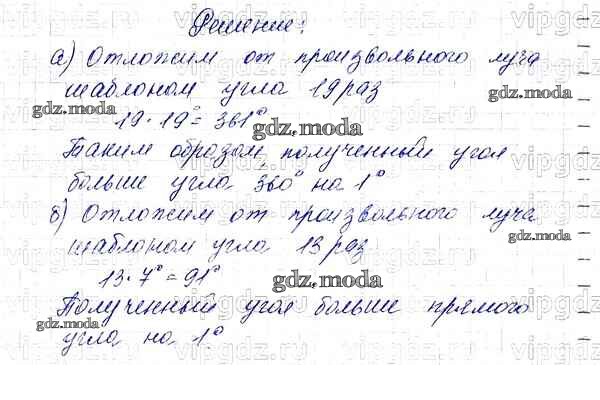 Решение:
а) Отложим от произвольного луча
шаблоном угла 19 раз
19 · 19° = 361°
Таким образом, полученный угол
больше угла 360° на 1°
б) Отложим от произвольного луча
шаблоном угла 13 раз
13 · 7° = 91°
Полученный угол больше прямого
угла на 1°.
gdz.moda
gdz.moda
gdz.moda
gdz.moda
gdz.moda
gdz.moda
vipgdz.ru